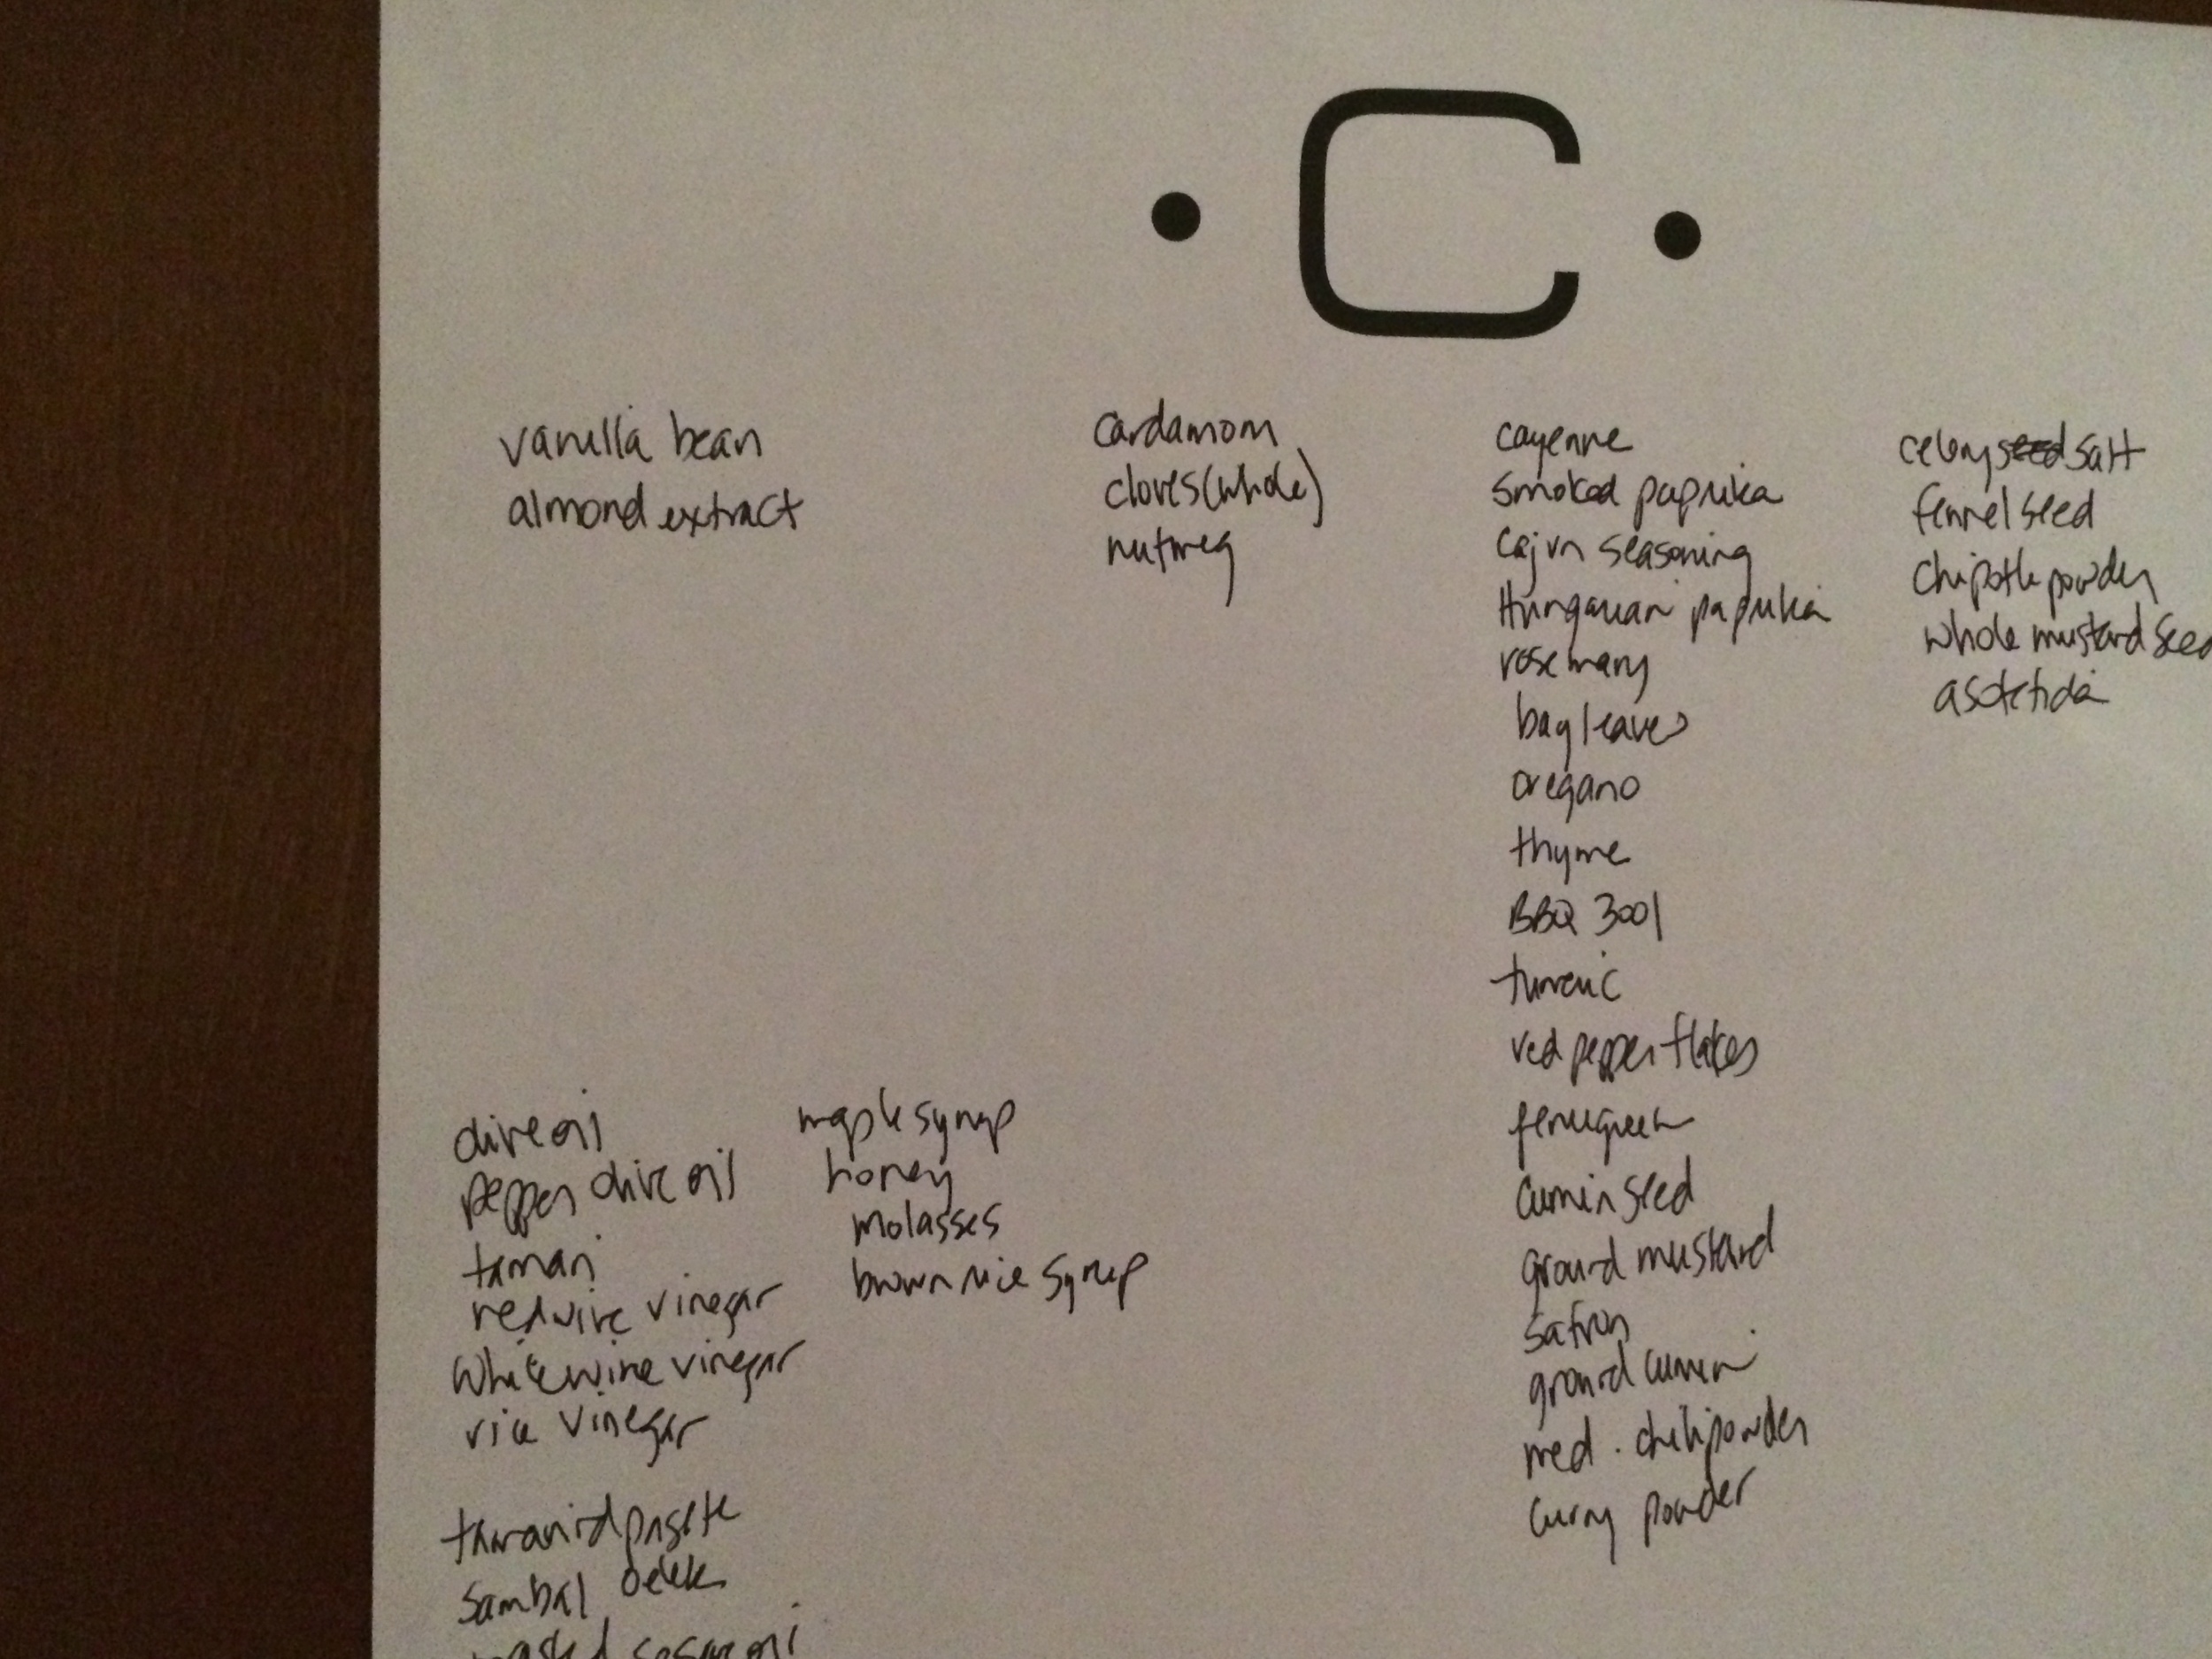 · C ·
vanilla bean
almond extract
cardamom
cloves (whole)
nutmeg
cayenne
smoked paprika
Cajun seasoning
Hungarian paprika
rosemary
bay leaves
oregano
thyme
BBQ 3001
turmeric
red pepper flakes
fenugreek
cumin seed
ground mustard
safron
ground cumin
med. chili powder
curry powder
celery seed salt
fennel seed
chipotle powder
whole mustard seed
asofetida
olive oil
pepper olive oil
tamari
red wine vinegar
white wine vinegar
rice vinegar
tamarind paste
sambal oelek
toasted sesame oil
maple syrup
honey
molasses
brown rice syrup